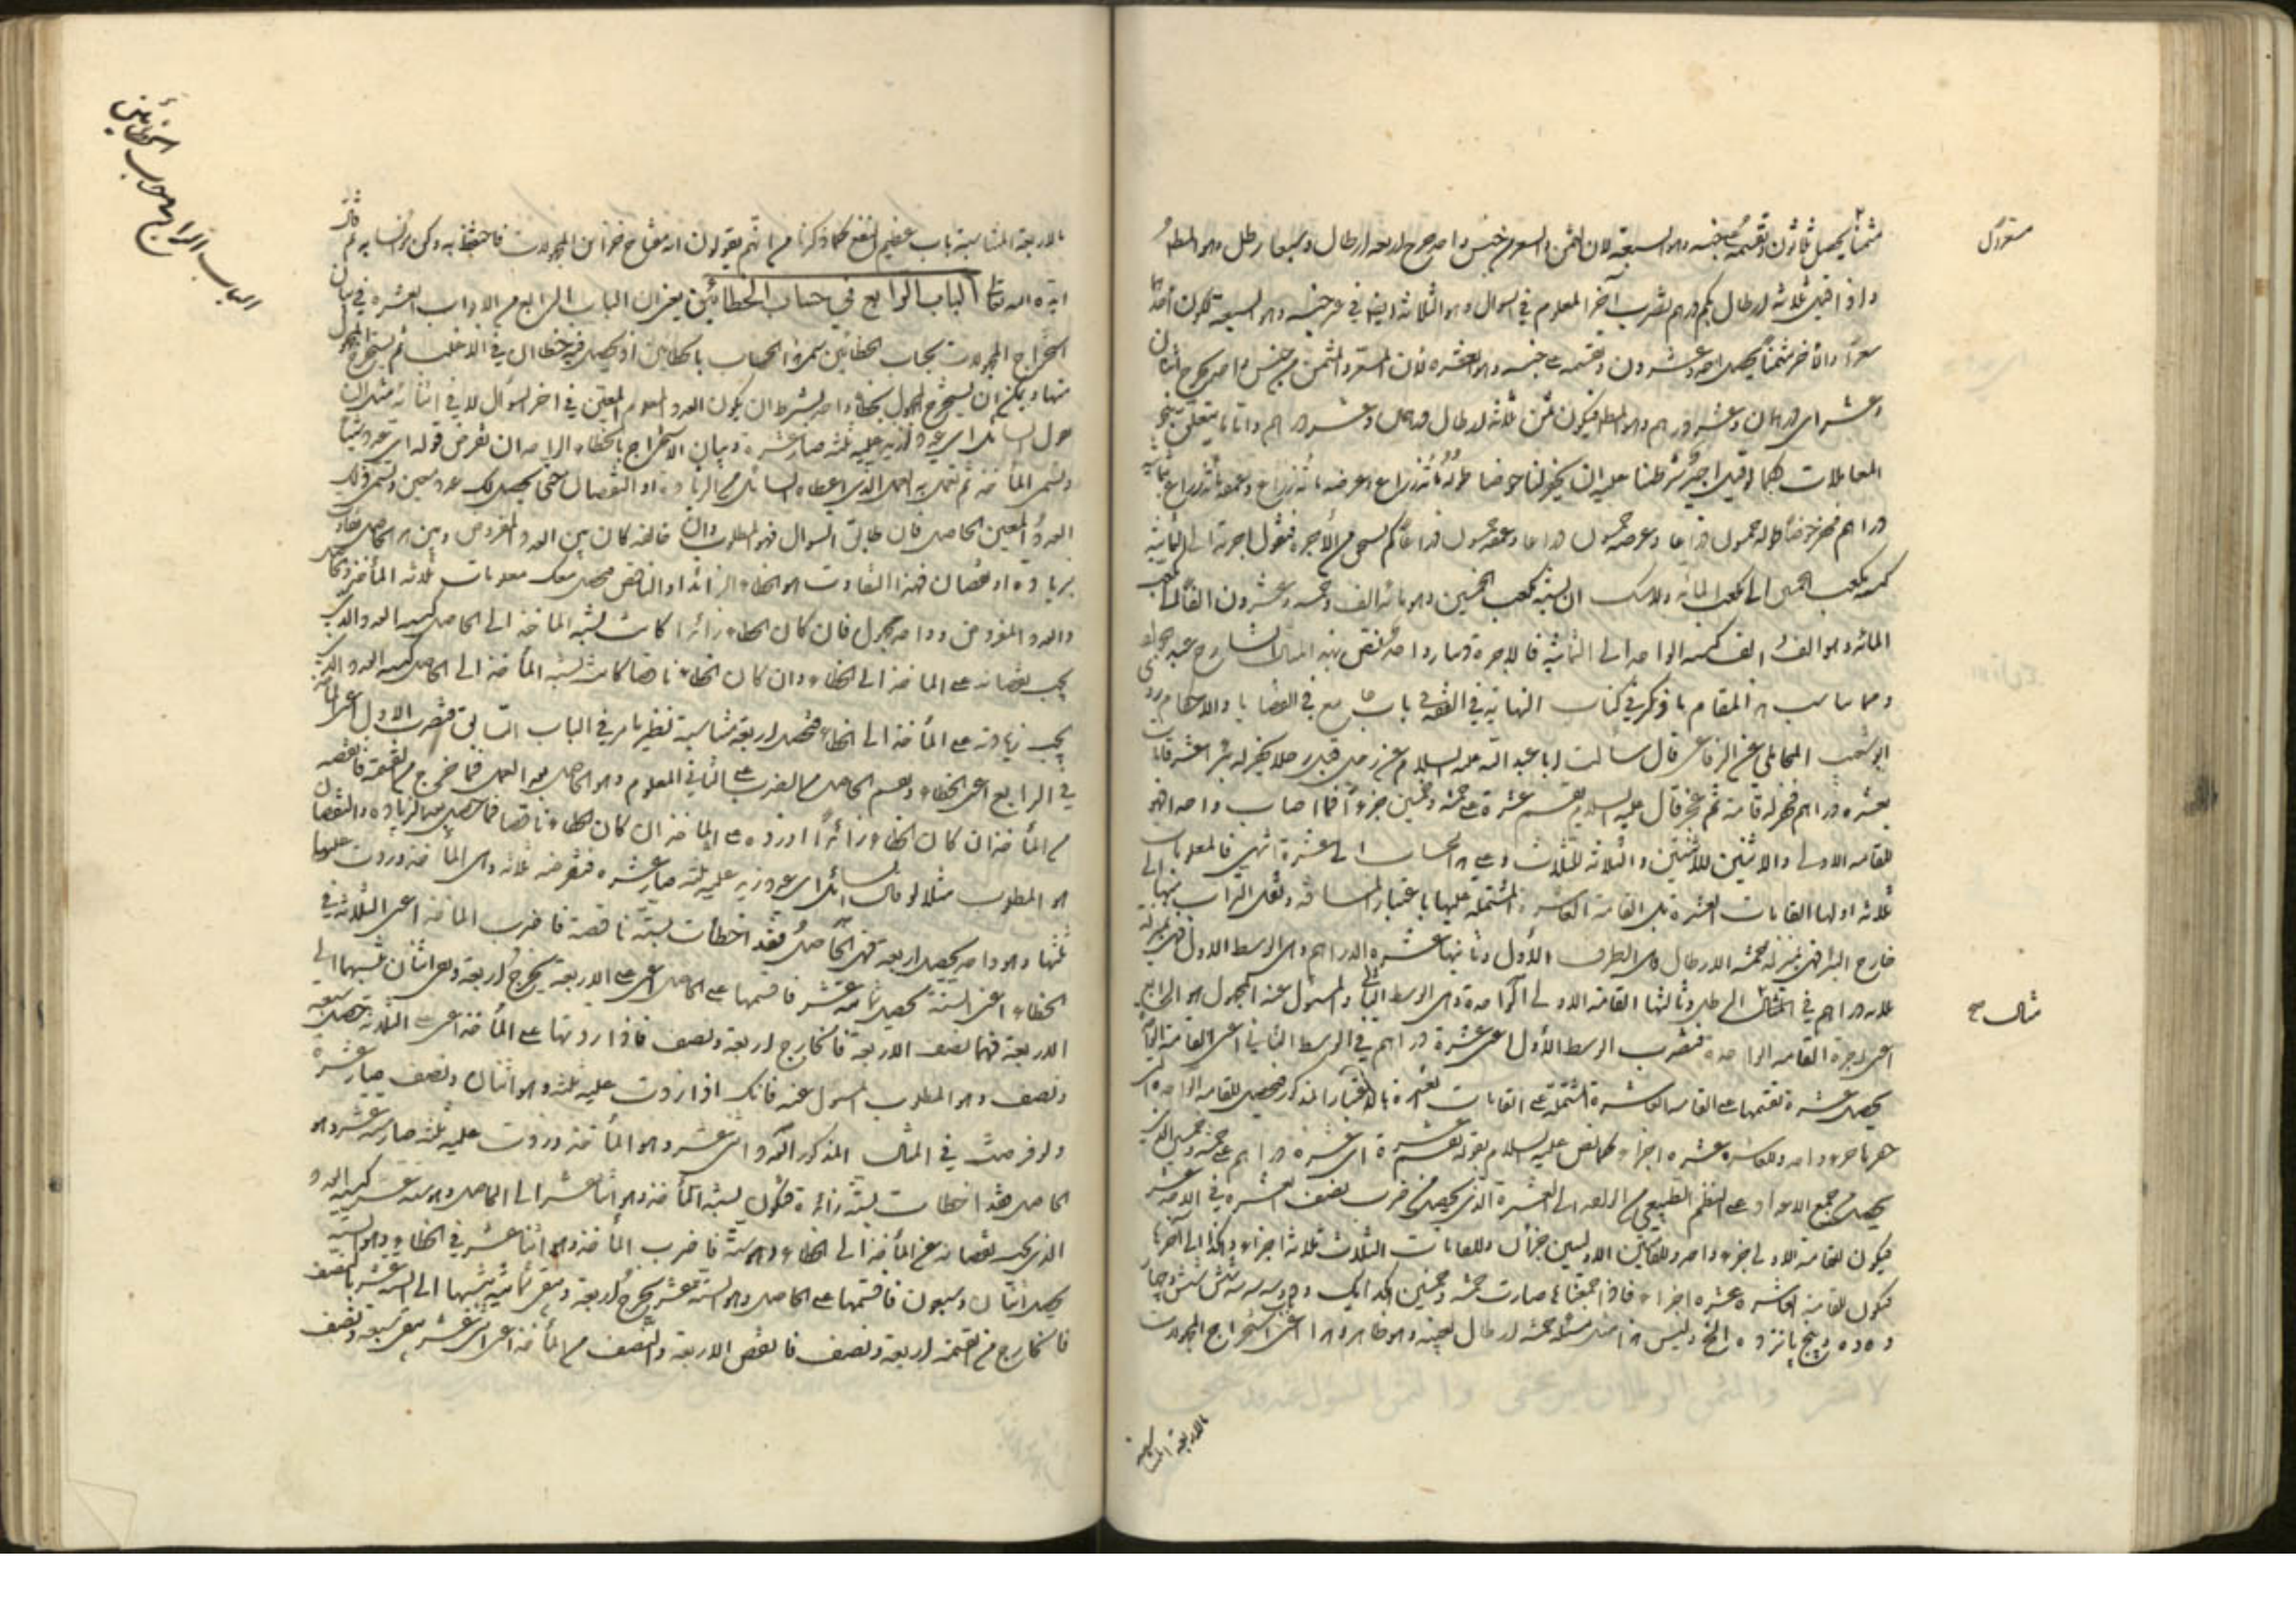 مثمنا يحصل ثلاثون ونقسمه على جنسه وهو السبعة لان الثمن والسعر من جنس واحد يخرج اربعة ارطال وسبعا رطل وهو المطلوب
واذا قيل ثلاثة ارطال بكم درهم نضرب آخر المعلوم في السوال وهو الثلاثة ايضا في غير جنسه وهو السبعة
سعرا والآخر مثمنا يحصل احد وعشرون ونقسمه على جنسه وهو العشرة لان المسعر والمثمن من جنس واحد يخرج اثنان
وعشر اي درهمان وعشر درهم وهو المطلوب فيكون ثمن ثلاثة ارطال درهمان وعشر درهم واما ما يتعلق بغير
المعاملات كما لو قيل اجير شرطنا عليه ان يحفر لنا حوضا طوله مائة ذراع وعرضه مائة ذراع وعمقه مائة ذراع بثمانية
دراهم فحفر حوضا طوله خمسون ذراعا وعرضه خمسون ذراعا وعمقه خمسون ذراعا كم يستحق من الاجرة فنقول اجرته الى الثمانية
كنسبة مكعب الخمسين الى مكعب المائة ولا شك ان نسبة مكعب الخمسين وهو مائة الف وخمسة وعشرون الفا الى مكعب
المائة وهو الف الف كنسبة الواحد الى الثمانية فالاجرة دينار واحد
ومما يناسب هذا المقام ما ذكر في كتاب النهاية في الفقه في باب جامع في القضايا والاحكام
ابو شعيب المحاملي عن الرفاعي قال سألت ابا عبد الله عليه السلام عن رجل قبل رجلا يحفر له بئر عشر قامات
بعشرة دراهم فحفر له قامة ثم عجز قال عليه السلام تقسم عشرة على خمسة وخمسين جزوا فما اصاب واحدا فهو
للقامة الاولى والاثنين للاثنتين والثلاثة للثلاث وعلى هذا الحساب الى عشرة انتهى فالمعلومات
ثلاثة اولها القامات العشرة بل القامة العاشرة المشتملة عليها باعتبار المسافة ونقل التراب منها الى
خارج البئر فهي بمنزلة خمسة الارطال وهي الطرف الاول وثانيها عشرة الدراهم وهي الوسط الاول فهي بمنزلة
ثلاثة دراهم في المثال الرطل وثالثها القامة الاولى الواحدة وهي الوسط الثاني والمسؤل عنه المجهول هو الرابع
اعني اجرة القامة الواحدة فنضرب الوسط الاول اعني عشرة دراهم في الوسط الثاني اعني القامة الواحدة
يحصل عشرة نقسمها على القامة العاشرة المشتملة على القامات العشرة بالاعتبار المذكور فيحصل للقامة الواحدة
جزء واحد وللعاشرة عشرة اجزاء كما نص عليه السلام بقوله تقسم عشرة اي عشرة دراهم على خمسة وخمسين الذي
يحصل من جمع الاعداد على النظم الطبيعي من الواحد الى العشرة الذي يحصل من ضرب نصف العشرة في الاحد عشر
فيكون للقامة الاولى جزء واحد وللقامتين الاوليين جزآن وللقامات الثلاث ثلاثة اجزاء وهكذا الى آخرها
فيكون للقامة العاشرة عشرة اجزاء فاذا جمعتها صارت خمسة وخمسين
وليس هذا مثل خمسة ارطال بعينه وهو ظاهر وهذا اعني استخراج المجهولات
بالاربعة المتناسبة
مثال
بالاربعة المتناسبة باب عظيم النفع كما ذكرنا من انهم يقولون انه مفتاح خزاين المجهولات فاحتفظ به وكن مؤانسا به ثم قال
ايده الله تعالى الباب الرابع في حساب الخطائين يعني ان الباب الرابع من الابواب العشرة في بيان
استخراج المجهولات بحساب الخطائين سموا الحساب بالخطائين اذ يحصل فيه خطاآن في الاغلب ثم يستخرج المجهول
منهما ويمكن ان يستخرج المجهول بخطاء واحد بشرط ان يكون العدد المعلوم المعين في آخر السؤال لا في اثنائه مثل ان
يقول السائل اي عدد زيد عليه ثلثه صار عشرة وبيان الاستخراج بالخطاء الواحد ان تفرض قوله اي عدد شيئا
وتسمى المأخذ ثم تعمل به العمل الذي اعطاه السائل من الزيادة او النقصان حتى يحصل لك عدد معين وتسمى ذلك
العدد المعين الحاصل فان طابق السوال فهو المطلوب وان خالفه كان بين العدد المفروض وبين هذا الحاصل تفاوت
بزيادة او نقصان فهذا التفاوت هو الخطاء الزائد او الناقص فيحصل معك معلومات ثلاثة المأخذ والحاصل
والعدد المفروض وواحد مجهول فان كان الخطاء زائدا كانت نسبة المأخذ الى الحاصل كنسبة العدد الذي
يجب نقصانه على المأخذ الى الخطاء وان كان الخطاء ناقصا كانت نسبة المأخذ الى الحاصل كنسبة العدد الذي
يجب زيادته على المأخذ الى الخطاء فيحصل اربعة متناسبة نظير ما مر في الباب السابق فتضرب الاول اعني المأخذ
في الرابع اعني الخطاء وتقسم الحاصل من الضرب على الثاني المعلوم وهو الحاصل بعد العمل فما خرج من القسمة فانقصه
من المأخذ ان كان الخطاء زائدا او زده على المأخذ ان كان الخطاء ناقصا فما حصل بعد الزيادة والنقصان
هو المطلوب مثلا لو قال السائل اي عدد زيد عليه ثلثه صار عشرة فنفرضه ثلاثة وهي المأخذ وزدت عليها
ثلثها وهو واحد يحصل اربعة فهي الحاصل فقد اخطأت بستة ناقصة فاضرب المأخذ اعني الثلاثة في
الخطاء اعني الستة يحصل ثمانية عشر فاقسمها على الحاصل اعني على الاربعة يخرج اربعة وبقى اثنان نسبتهما الى
الاربعة فهما نصف الاربعة فالخارج اربعة ونصف فاذا زدتها على المأخذ اعني على الثلاثة يحصل سبعة
ونصف وهو المطلوب المسؤل عنه فانك اذا زدت عليه ثلثه وهو اثنان ونصف صار عشرة
ولو فرضت في المثال المذكور العدد اثنى عشر وهو المأخذ وزدت عليه ثلثه صار ستة عشر وهو
الحاصل فقد اخطأت بستة زائدة فتكون نسبة المأخذ وهو اثنا عشر الى الحاصل وهو ستة عشر كنسبة العدد
الذي يجب نقصانه عن المأخذ الى الخطاء وهو ستة فاضرب المأخذ وهو اثنا عشر في الخطاء وهو الستة
يحصل اثنان وسبعون فاقسمها على الحاصل وهو الستة عشر يخرج اربعة وبقى ثمانية نسبتها الى الستة عشر بالنصف
فالخارج من القسمة اربعة ونصف فانقص الاربعة والنصف من المأخذ اعني اثنى عشر بقى سبعة ونصف
الباب الرابع في حساب الخطائين